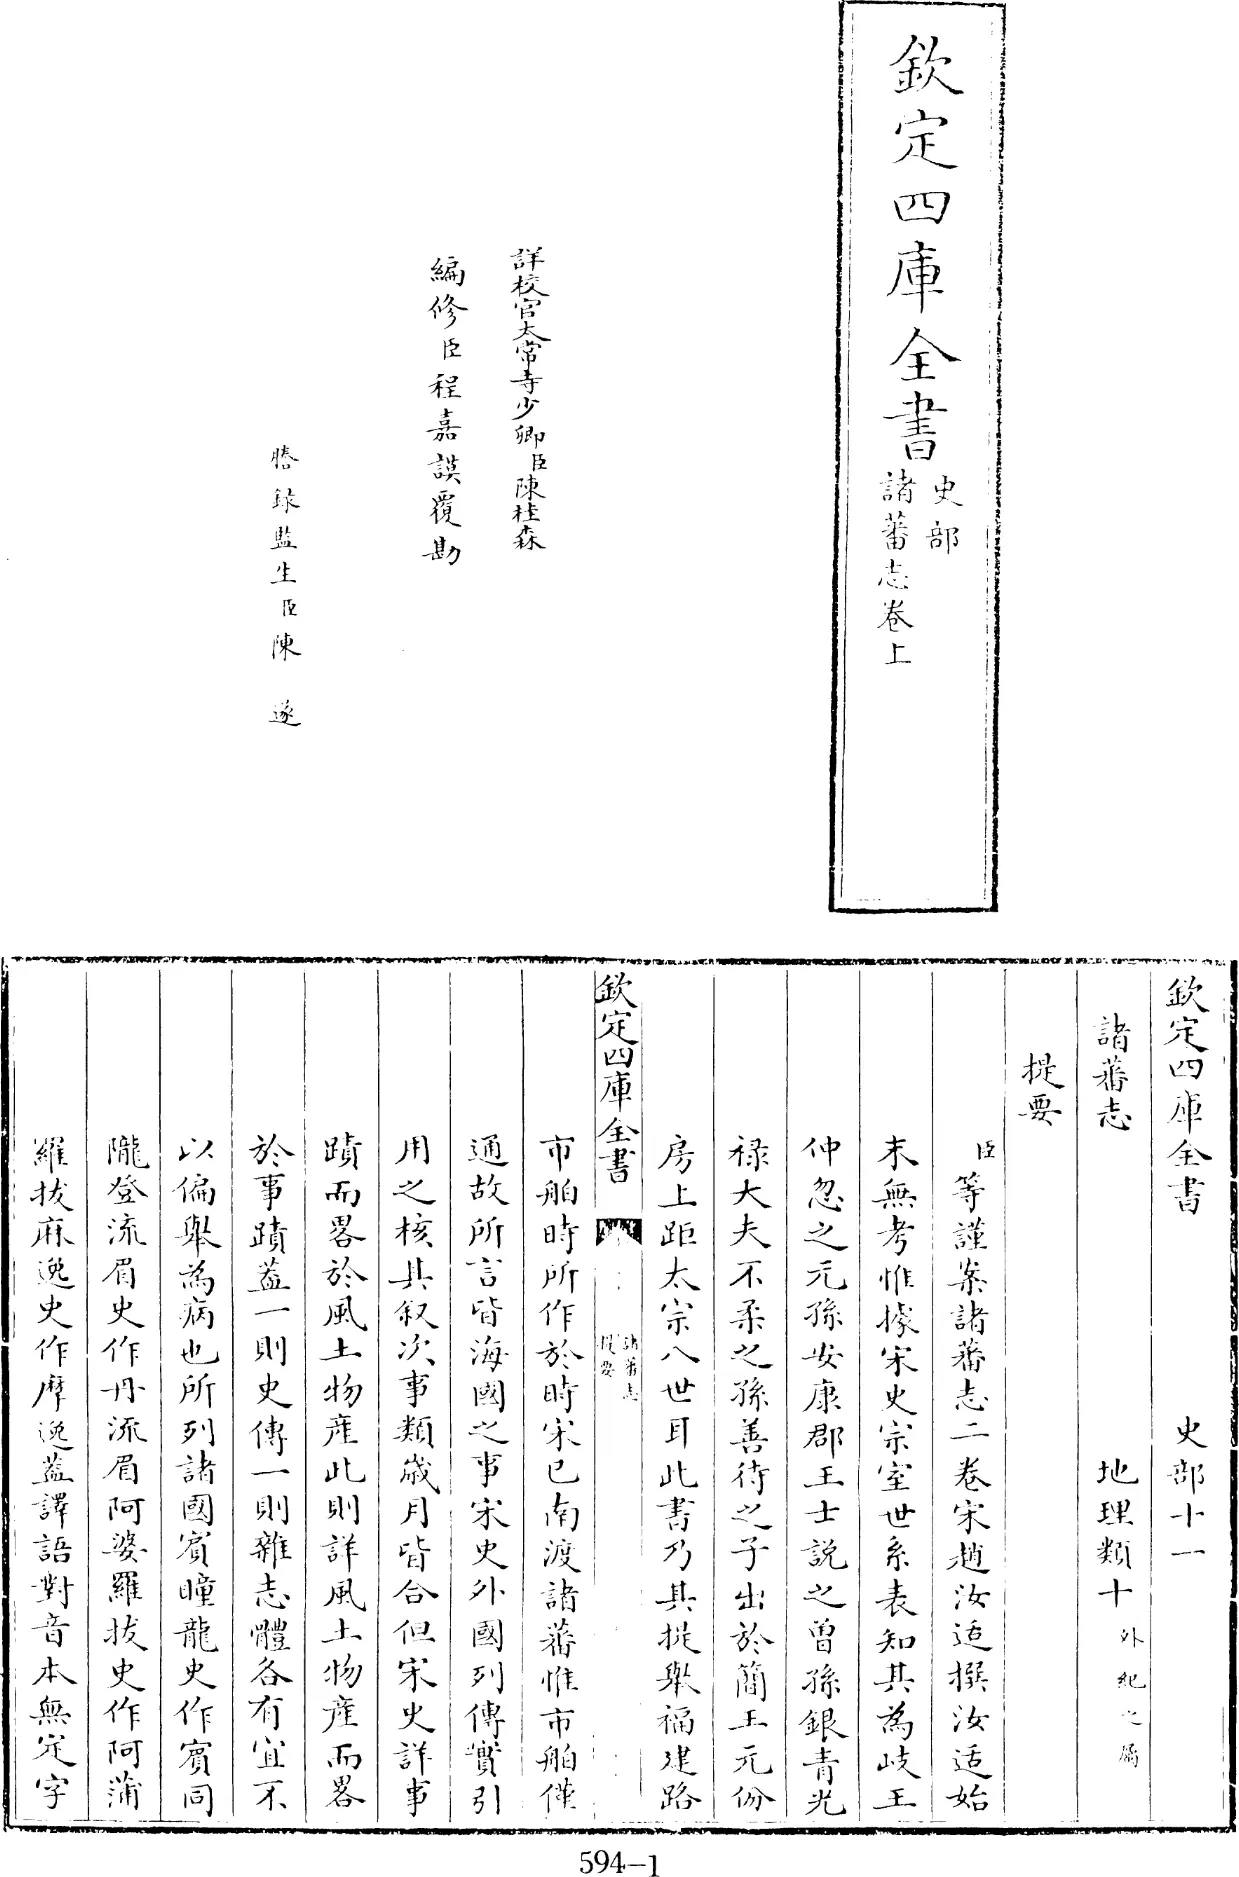 欽定四庫全書
史部
諸蕃志卷上
詳校官太常寺少卿臣陳桂森
編修臣程嘉謨覆勘
謄録監生臣陳遂
欽定四庫全書 史部十一
諸蕃志 地理類十外紀之屬
提要
臣等謹案諸蕃志二卷宋趙汝适撰汝适始
末無考惟據宋史宗室世系表知其為岐王
仲忽之元孫安康郡王士説之曾孫銀青光
禄大夫不柔之孫善待之子出於簡王元份
房上距太宗八世耳此書乃其提舉福建路
欽定四庫全書
諸蕃志
提要
市舶時所作於時宋已南渡諸蕃惟市舶僅
通故所言皆海國之事宋史外國列傳實引
用之核其叙次事類歲月皆合但宋史詳事
蹟而畧於風土物産此則詳風土物産而畧
於事蹟葢一則史傳一則雜志體各有宜不
以偏舉為病也所列諸國賓瞳龍史作賓同
隴登流眉史作丹流眉阿婆羅拔史作阿蒲
羅拔麻逸史作摩逸葢譯語對音本無定字
594-1